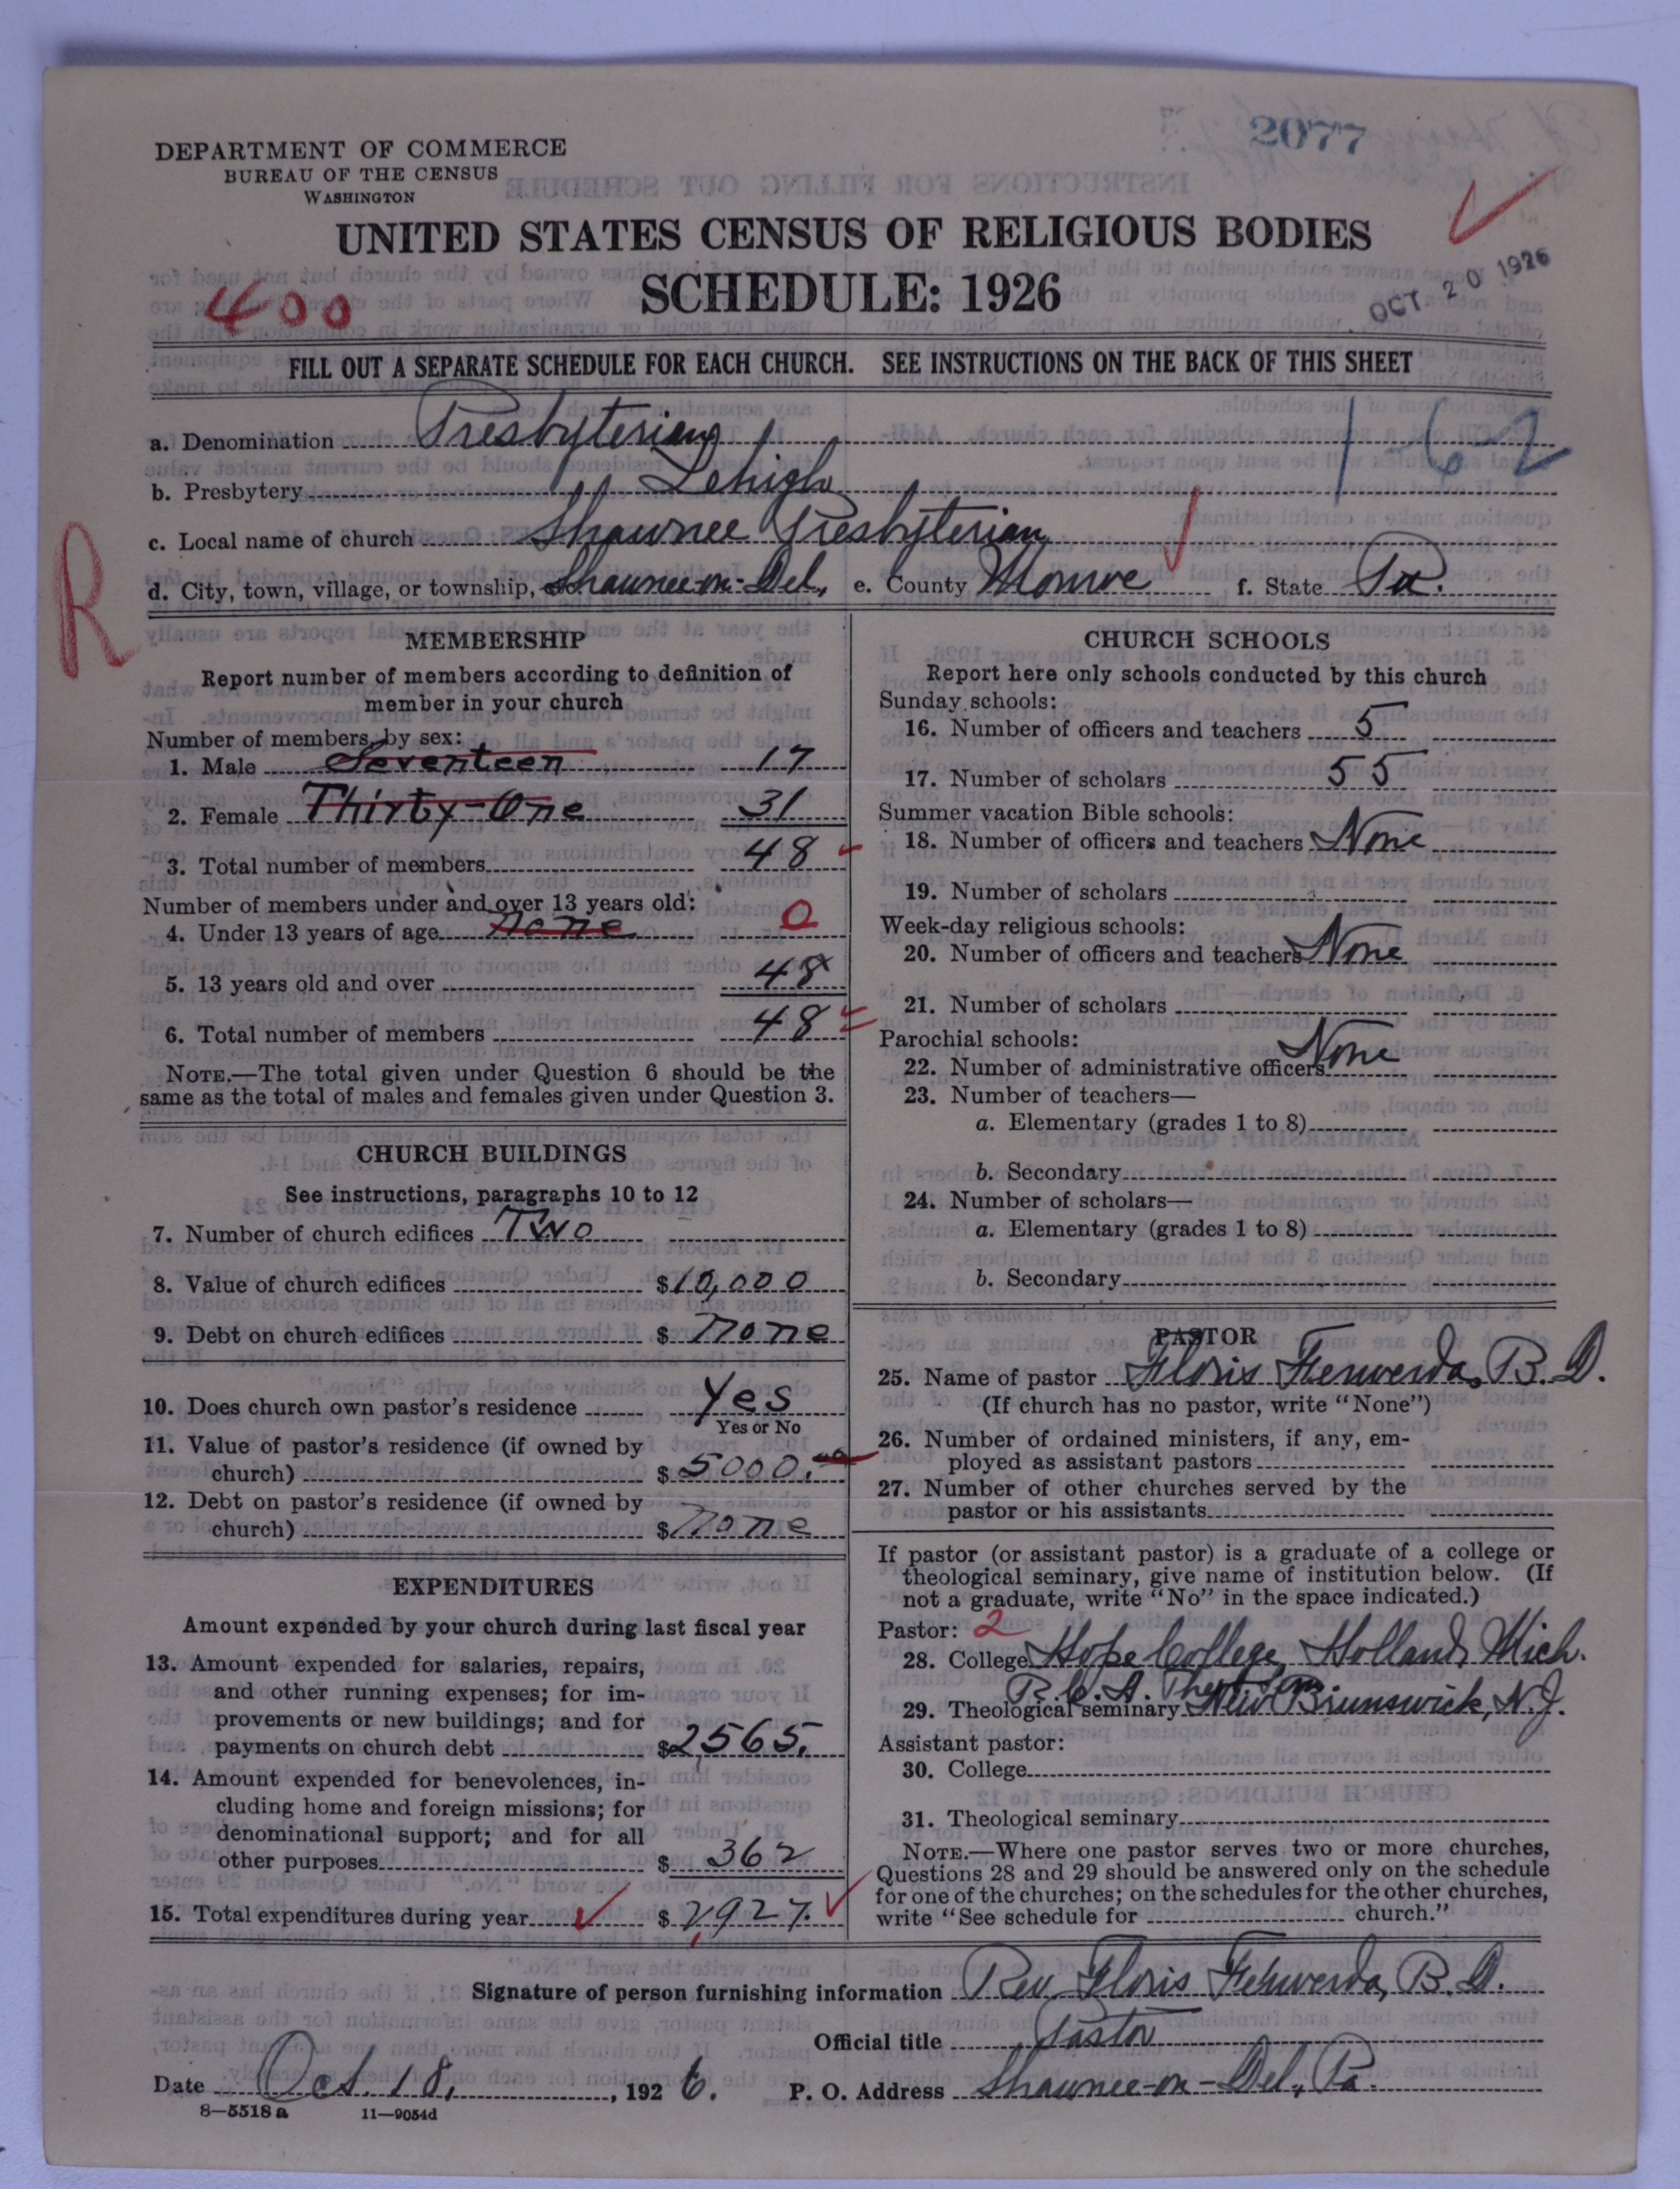 2077
DEPARTMENT OF COMMERCE
BUREAU OF THE CENSUS
WASHINGTON
UNITED STATES CENSUS OF RELIGIOUS BODIES
SCHEDULE: 1926
OCT 20 1926
400
FILL OUT A SEPARATE SCHEDULE FOR EACH CHURCH. SEE INSTRUCTIONS ON THE BACK OF THIS SHEET
a. Denomination Presbyterian
1-62
b. Presbytery Lehigh
c. Local name of church Shawnee Presbyterian
d. City, town, village, or township, Shawnee-on-Del, e. County Monroe f. State Pa.
R
MEMBERSHIP
Report number of members according to definition of
member in your church
Number of members by sex:
1. Male Seventeen 17
2. Female Thirty-One 31
3. Total number of members 48
Number of members under and over 13 years old:
4. Under 13 years of age none 0
5. 13 years old and over 48
6. Total number of members 48
NOTE.—The total given under Question 6 should be the
same as the total of males and females given under Question 3.
CHURCH BUILDINGS
See instructions, paragraphs 10 to 12
7. Number of church edifices Two
8. Value of church edifices $10,000
9. Debt on church edifices $ none
10. Does church own pastor's residence Yes
Yes or No
11. Value of pastor's residence (if owned by
church) $5000.
12. Debt on pastor's residence (if owned by
church) $none
EXPENDITURES
Amount expended by your church during last fiscal year
13. Amount expended for salaries, repairs,
and other running expenses; for im-
provements or new buildings; and for
payments on church debt $2565.
14. Amount expended for benevolences, in-
cluding home and foreign missions; for
denominational support; and for all
other purposes $ 362
15. Total expenditures during year $ 2,927.
CHURCH SCHOOLS
Report here only schools conducted by this church
Sunday schools:
16. Number of officers and teachers 5
17. Number of scholars 55
Summer vacation Bible schools:
18. Number of officers and teachers None
19. Number of scholars
Week-day religious schools:
20. Number of officers and teachers None
21. Number of scholars
Parochial schools:
22. Number of administrative officers None
23. Number of teachers—
a. Elementary (grades 1 to 8)
b. Secondary
24. Number of scholars—
a. Elementary (grades 1 to 8)
b. Secondary
PASTOR
25. Name of pastor Floris Ferwerda, B.D.
(If church has no pastor, write "None")
26. Number of ordained ministers, if any, em-
ployed as assistant pastors
27. Number of other churches served by the
pastor or his assistants
If pastor (or assistant pastor) is a graduate of a college or
theological seminary, give name of institution below. (If
not a graduate, write "No" in the space indicated.)
Pastor: 2
28. College Hope College, Holland, Mich.
R.C.A. Theol Sem.
29. Theological seminary New Brunswick, N.J.
Assistant pastor:
30. College
31. Theological seminary
NOTE.—Where one pastor serves two or more churches,
Questions 28 and 29 should be answered only on the schedule
for one of the churches; on the schedules for the other churches,
write "See schedule for church."
Signature of person furnishing information Rev. Floris Ferwerda, B.D.
Official title Pastor
Date Oct. 18, 1926. P. O. Address Shawnee-on-Del, Pa.
8—5518a 11—9054d